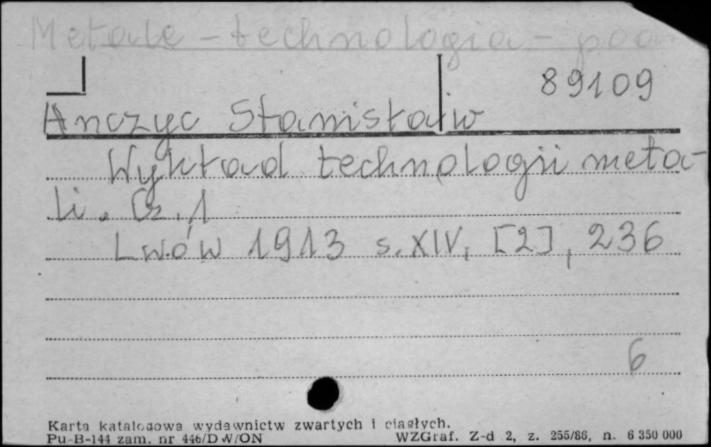 Metale - technologia - pod
89109
Anczyc Stanisław
Wykład technologii meta-
li. Cz. 1
Lwów 1913 s. XIV, [2], 236
6
Karta katalogowa wydawnictw zwartych i ciągłych.
Pu-B-144 zam. nr 446/DW/ON WZGraf. Z-d 2, z. 255/86, n. 6 350 000